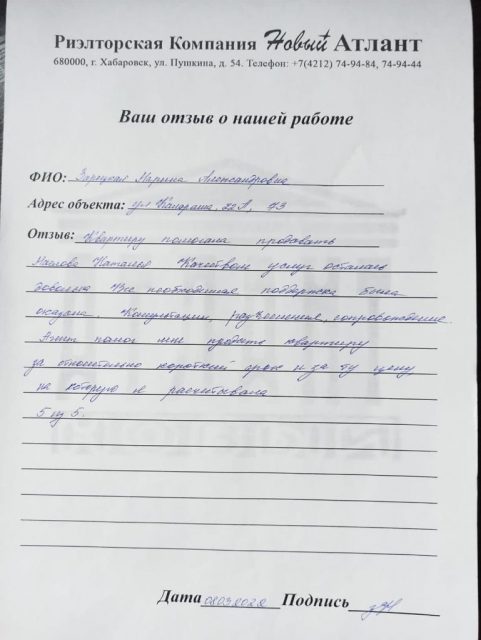 Риэлторская Компания Новый Атлант
680000, г. Хабаровск, ул. Пушкина, д. 54. Телефон: +7(4212) 74-94-84, 74-94-44
Ваш отзыв о нашей работе
ФИО: Зарецкая Марина Александровна
Адрес объекта: ул 22А, 73
Отзыв: Квартиру помогала продавать
Маслова Наталья Качеством услуг осталась
довольна Все необходимая поддержка была
оказана. Консультации, разъяснения, сопровождение.
Агент помог мне продать квартиру
за относительно короткий срок и за ту цену
на которую и расчитывала
5 из 5.
Дата 08.03.2022 Подпись